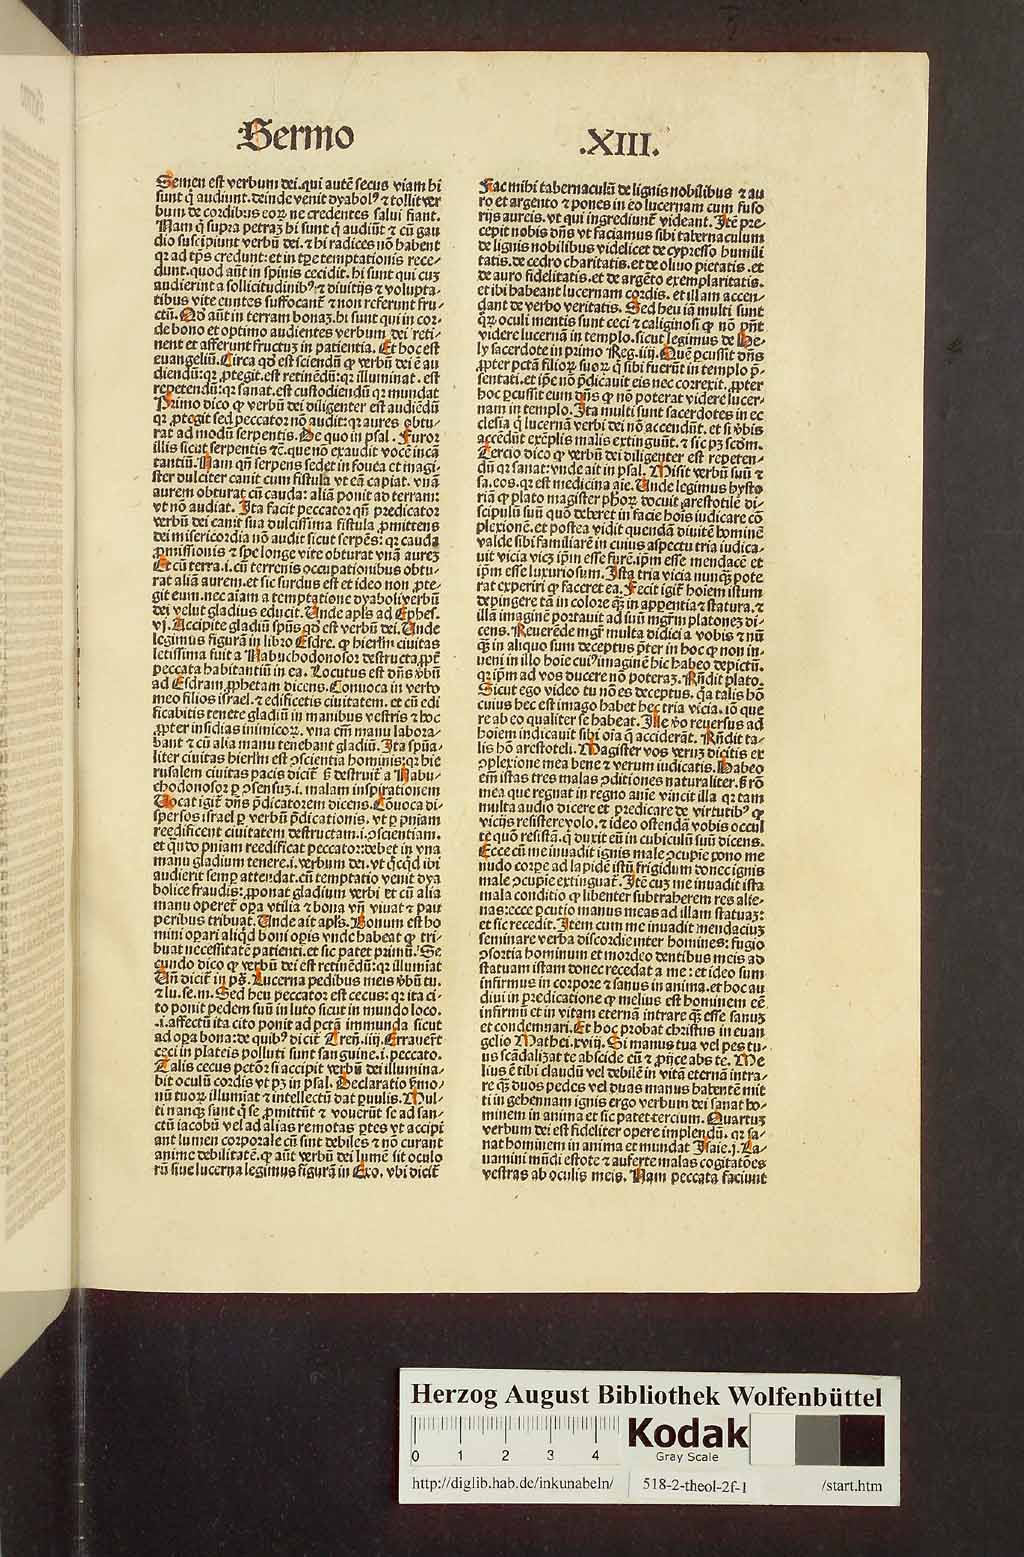 Sermo
.XIII.
Semen est verbum dei. qui autē secus viam hi
sunt q̄ audiunt. deinde venit dyabolꝰ ⁊ tollit ver
bum de cordibus eoꝝ ne credentes salui fiant.
Nam q̄ supra petraꝫ hi sunt q̄ audiūt ⁊ cū gau
dio suscipiunt verbū dei. ⁊ hi radices nō habent
qꝛ ad tp̄s credunt: et in tp̄e temptationis rece-
dunt. quod aūt in spinis cecidit. hi sunt qui cuꝫ
audierint a sollicitudinibꝰ. ⁊ diuitijs ⁊ volupta-
tibus vite euntes suffocant̄ ⁊ non referunt fru-
ctū. Qd̄ aūt in terram bonaꝫ. hi sunt qui in cor-
de bono et optimo audientes verbum dei reti-
nent et afferunt fructuꝫ in patientia. Et hoc est
euangeliū. Circa qd̄ est sciendū ꝙ verbū dei ē au
diendū: qꝛ ꝓtegit. est retinēdū: qꝛ illuminat. est
repetendū: qꝛ sanat. est custodiendū qꝛ mundat
Primo dico ꝙ verbū dei diligenter est audiēdū
qꝛ ꝓtegit sed peccator nō audit: qꝛ aures obtu-
rat ad modū serpentis. De quo in psal. Furor
illis sicut serpentis ⁊c̄. que nō exaudit vocē incā
tantiū. Nam qn̄ serpens sedet in fouea et magi-
ster dulciter canit cum fistula vt eā capiat. vnā
aurem obturat cū cauda: aliā ponit ad terram:
vt nō audiat. Ita facit peccator qn̄ predicator
verbū dei canit sua dulcissima fistula ꝓmittens
dei misericordia nō audit sicut serpēs: qꝛ cauda
ꝓmissionis ⁊ spe longe vite obturat vnā aureꝫ
Et cū terra. i. cū terrenis occupationibus obtu-
rat aliā aurem. et sic surdus est et ideo non ꝓte-
git eum. nec aīam a temptatione dyaboli verbū
dei velut gladius educit. Unde apl̄s ad Ephes.
vj. Accipite gladiū spūs qd̄ est verbū dei. Unde
legimus figurā in libro Esdre. ꝙ hierl̄m ciuitas
letissima fuit a Nabuchodonosor destructa. ꝓpt̄
peccata habitantiū in ea. Locutus est dn̄s v̄bū
ad Esdram ꝓphetam dicens. Conuoca in verbo
meo filios israel. ⁊ edificetis ciuitatem. et cū edi
ficabitis tenete gladiū in manibus vestris ⁊ hoc
ꝓpter insidias inimicoꝝ. vna em̄ manu labora-
bant ⁊ cū alia manu tenebant gladiū. Ita spūa-
liter ciuitas hierl̄m est ɔscientia hominis: qꝛ hie
rusalem ciuitas pacis dicit̄ ꝫ destruit̄ a Nabu-
chodonosor ꝑ ɔsensuꝫ. i. malam inspirationem
Uocat igit̄ dn̄s p̄dicatorem dicens. Cōuoca di-
spersos israel ꝑ verbū p̄dicationis. vt ꝑ pn̄iam
reedificent ciuitatem destructam. i. ɔscientiam.
et qn̄do pn̄iam reedificat peccator: debet in vna
manu gladium tenere. i. verbum dei. vt qͥcqͥd ibi
audierit semꝑ attendat. cū temptatio venit dya
bolice fraudis: ꝓponat gladium verbi et cū alia
manu operet̄ oꝑa vtilia ⁊ bona vn̄ viuat ⁊ pau
peribus tribuat. Unde ait apl̄s. Bonum est ho
mini oꝑari aliqͥd boni oꝑis vnde habeat ꝙ tri-
buat necessitatē patienti. et sic patet primū. Se
cundo dico ꝙ verbū dei est retinēdū: qꝛ illumīat
Un̄ dicit̄ in ps̄. Lucerna pedibus meis v̄bū tu.
⁊ lu. se. m. Sed heu peccator est cecus: qꝛ ita ci-
to ponit pedem suū in luto sicut in mundo loco.
.i. affectū ita cito ponit ad pctā immunda sicut
ad oꝑa bona: de quibꝰ dicit̄ Tren̄. iiij. Errauerūt
ceci in plateis polluti sunt sanguine. i. peccato.
Talis cecus pctōr si accipit verbū dei illumina-
bit oculū cordis vt pꝫ in psal. Declaratio ẜmo-
nū tuoꝝ illumīat ⁊ intellectū dat ꝑuulis. Mul-
ti nanqꝫ sunt q̄ se ꝓmittūt ⁊ vouerūt se ad san-
ctū iacobū vel ad alias remotas ꝑtes vt accipi
ant lumen corporale cū sint debiles ⁊ nō curant
anime debilitatē. ꝙ aūt verbū dei lumē sit oculo
rū siue lucerna legimus figurā in Exo. vbi dicit̄
Fac mihi tabernaculū de lignis nobilibus ⁊ au
ro et argento ⁊ pones in eo lucernam cum fuso
rijs aureis. vt qui ingrediunt̄ videant. Itē pre-
cepit nobis dn̄s vt faciamus sibi tabernaculum
de lignis nobilibus videlicet de cypresso humili
tatis. de cedro charitatis. et de oliuo pietatis. et
de auro fidelitatis. et de argēto exemplaritatis.
et ibi habeant lucernam cordis. et illam accen-
dant de verbo veritatis. Sed heu iā multi sunt
qꝛ oculi mentis sunt ceci ⁊ caliginosi ꝙ nō pn̄t
videre lucernā in templo. sicut legimus de He-
ly sacerdote in primo Reg. iiij. Quē ꝑcussit dn̄s
ꝓpter pctā filioꝝ suoꝝ q̄ sibi fuerūt in templo p̄-
sentati. et ip̄e nō p̄dicauit eis nec correxit. ꝓpter
hoc ꝑcussit eum dn̄s ꝙ nō poterat videre lucer-
nam in templo. Ita multi sunt sacerdotes in ec
clesia q̄ lucernā verbi dei nō accendūt. et si v̄bis
accēdūt exēplis malis extinguūt. ⁊ sic pꝫ scd̄m.
Tercio dico ꝙ verbū dei diligenter est repeten-
dū qꝛ sanat: vnde ait in psal. Misit verbū suū ⁊
sa. eos. qꝛ est medicina aīe. Unde legimus hysto
riā ꝙ plato magister ph̄oꝝ docuit arestotilē di-
scipulū suū quō deberet in facie hoīs iudicare cō
plexionē. et postea vidit quendā diuitē hominē
valde sibi familiarē in cuius aspectu tria iudica-
uit vicia vicꝫ ip̄m esse furē. ip̄m esse mendacē et
ip̄m esse luxuriosum. Ista tria vicia nunqꝫ pote
rat experiri ꝙ faceret ea. Fecit igit̄ hoīem istum
depingere tā in colore qꝫ in apparentia ⁊ statura. ⁊
illā imaginē portauit ad suū mgr̄m platoneꝫ di-
cens. Reuerēde mgr̄ multa didici a vobis ⁊ nū
qꝫ in aliquo sum deceptus p̄ter in hoc ꝙ non in-
ueni in illo hoīe cuiꝰ imaginē hic habeo depictū.
qꝛ ip̄m ad vos ducere nō poteraꝫ. Rn̄dit plato.
Sicut ego video tu nō es deceptus. qꝛ talis hō
cuius hec est imago habet hec tria vicia. iō que
re ab eo qualiter se habeat. Ille v̄o reuersus ad
hoīem indicauit sibi oīa q̄ acciderāt. Rn̄dit ta-
lis hō arestoteli. Magister vos veruꝫ dicitis ex
ɔplexione mea bene ⁊ verum iudicatis. Habeo
em̄ istas tres malas ɔditiones naturaliter. ꝫ rō
mea que regnat in regno anīe vincit illa qꝛ tam
multa audio dicere et predicare de virtutibꝰ ꝙ
vicijs resistere volo. ⁊ ideo ostendā vobis occul
te quō resistā. q̄ duxit eū in cubiculū suū dicens.
Ecce cū me inuadit ignis male ɔcupie pono me
nudo corꝑe ad lapidē istū frigidum donec ignis
male ɔcupie extinguat̄. Itē cuꝫ me inuadit ista
mala conditio ꝙ libenter subtraherem res alie-
nas: ecce ꝑcutio manus meas ad illam statuaꝫ:
et sic recedit. Item cum me inuadit mendaciuꝫ
seminare verba discordie inter homines: fugio
ɔsortia hominum et mordeo dentibus meis ad
statuam istam donec recedat a me: et ideo sum
infirmus in corpore ⁊ sanus in anima. et hoc au
diui in predicatione ꝙ melius est hominem eē
infirmū et in vitam eternā intrare qꝫ esse sanuꝫ
et condemnari. Et hoc probat christus in euan
gelio Mathei. xviij. Si manus tua vel pes tu-
us scādalizat te abscide eū ⁊ proijce abs te. Me
lius ē tibi claudū vel debilē in vitā eternā intra-
re qꝫ duos pedes vel duas manus habentē mit
ti in gehennam ignis ergo verbum dei sanat ho-
minem in anima et sic patet tercium. Quartuꝫ
verbum dei est fideliter opere implendū. qꝛ sa-
nat hominem in anima et mundat Isaie. j. La-
uamini mūdi estote ⁊ auferte malas cogitatōes
vestras ab oculis meis. Nam peccata faciunt
Herzog August Bibliothek Wolfenbüttel
0 1 2 3 4
Kodak
Gray Scale
http://diglib.hab.de/inkunabeln/ 518-2-theol-2f-1 /start.htm